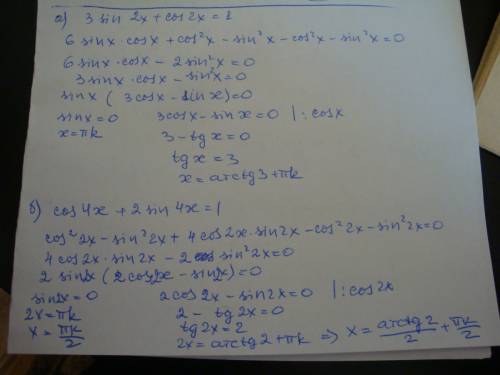 а) 3 sin 2x + cos 2x = 1
6 sinx · cosx + cos²x - sin²x - cos²x - sin²x = 0
6 sinx · cosx - 2 sin²x = 0
3 sinx · cosx - sin²x = 0
sinx ( 3cosx - sin x) = 0
sinx = 0 3cosx - sin x = 0 | : cosx
x = πk 3 - tg x = 0
tg x = 3
x = arctg 3 + πk
б) cos 4x + 2 sin 4x = 1
cos² 2x - sin² 2x + 4 cos 2x · sin 2x - cos² 2x - sin² 2x = 0
4 cos 2x · sin 2x - 2 sin² 2x = 0
2 sin 2x ( 2 cos 2x - sin 2x ) = 0
sin 2x = 0 2 cos 2x - sin 2x = 0 | : cos 2x
2x = πk 2 - tg 2x = 0
x = πk/2 tg 2x = 2
2x = arctg 2 + πk ⇒ x = arctg 2/2 + πk/2